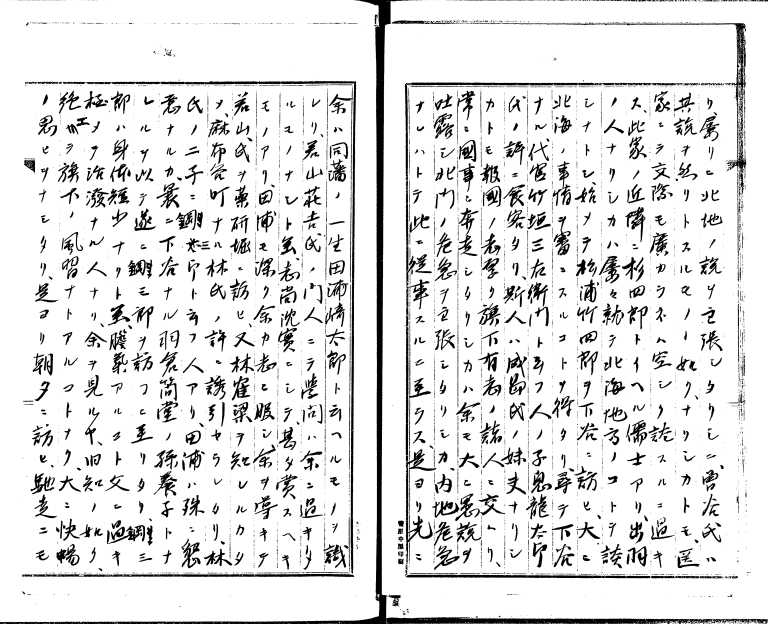 リ屢〻北地ノ説ヲ主張シタリシニ曽谷氏ハ
其説ヲ然リトスルモノヽ如クナリシカトモ医
家ニテ交際モ廣カラネハ空シク談スルニ過キ
ス此家ノ近隣ニ杉四郎トイヘル儒士アリ出羽
ノ人ナリシカハ屢々勧テ北海地方ノコトヲ談
シナトシ始メテ松浦竹四郎ヲ下谷ニ訪ヒ大ニ
北海ノ事情ヲ審ニスルコトヲ得タリ尋テ下谷
ナル代官竹垣三右衛門ト云フ人ノ子息龍太郎
氏ノ許ニ食客タリ斯人ハ成島氏ノ妹丈ナリシ
カトモ報國ノ志厚ク旗下有志ノ諸人ニ交ハリ
常ニ國事ニ奔走シタリシカハ余モ大ニ愚説ヲ
吐露シ北門ノ危急ヲ主張シタリシカ内地危急
ナレハトテ此ニ従事スルニ至ラス是ヨリ先ニ
余ハ同藩ノ一生田浦晴太郎ト云ヘルモノヲ識
レリ若山荘吉氏ノ門人ニテ學問ハ余ニ過キタ
ルモノナシト虽志尚沈實ニシテ甚タ賞スヘキ
モノアリ田浦モ深ク余カ志ニ服シ余ヲ導キテ
若山氏ヲ薬研堀ニ訪ヒ又林崔梁ヲ知レルカタ
メ麻布谷町ナル林氏ノ許ニ誘引セラレタリ林
氏ノ二子ニ鋼太郎鋼三郎ト云フ人アリ田浦ハ殊ニ懇
意ナルカ裏ニ下谷ナル羽倉簡堂ノ孫養子トナ
レルヲ以テ遂ニ鋼三郎ヲ訪フニ至リタリ鋼三
郎ハ身体短少ナリト虽膽氣アルコト父ニ過キ
極メテ活潑ナル人ナリ余ヲ見ルヤ旧知ノ如ク
絶エテ旗下ノ風習ナトアルコトナク大ニ快暢
ノ思ヒヲナシタリ是ヨリ朝夕ニ訪ヒ馳走ニモ